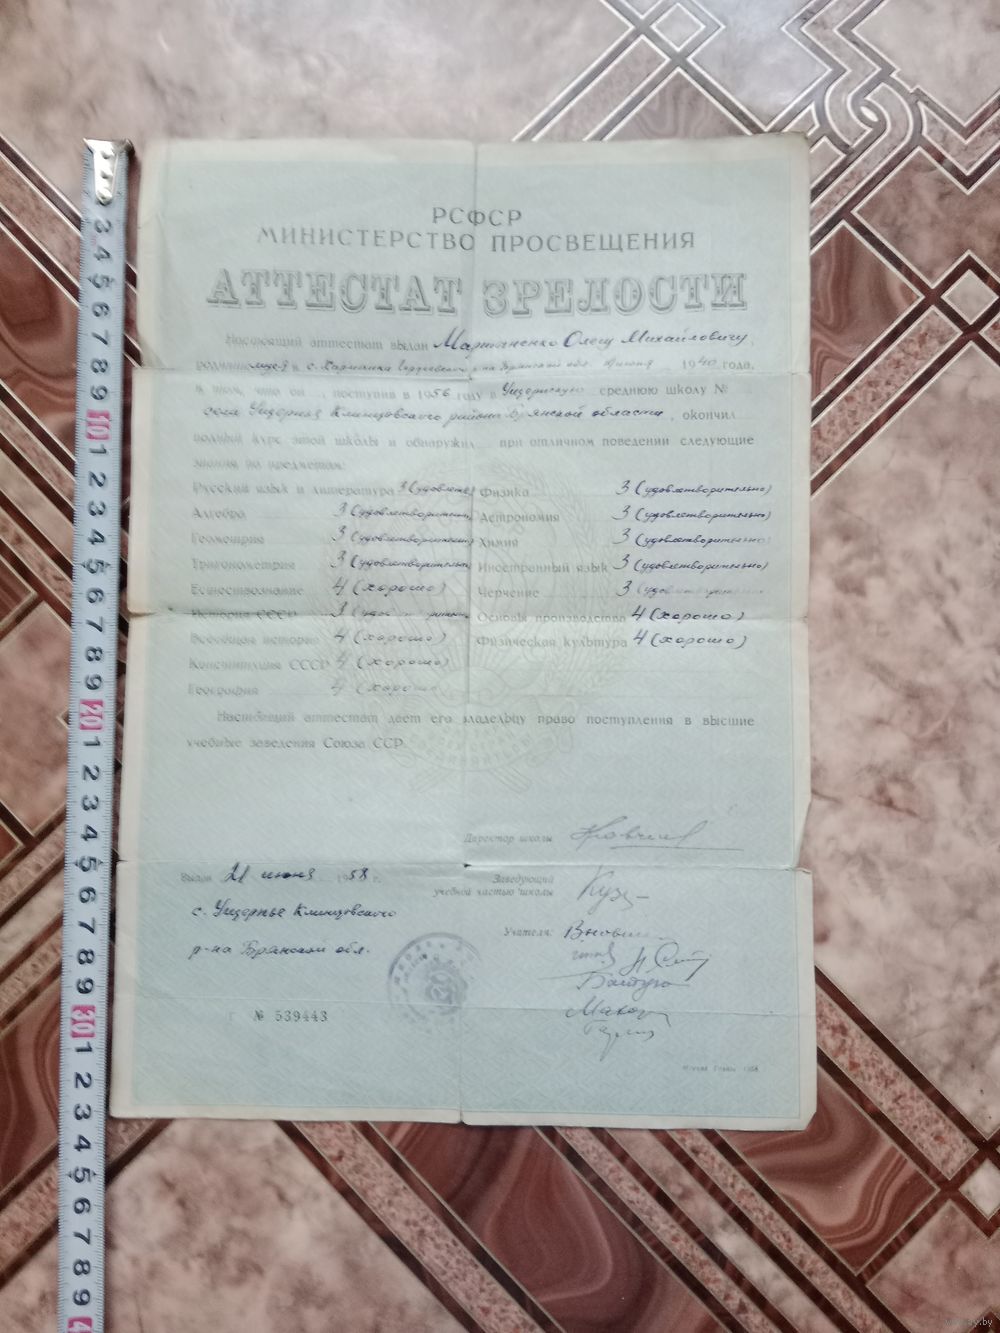 РСФСР
МИНИСТЕРСТВО ПРОСВЕЩЕНИЯ
АТТЕСТАТ ЗРЕЛОСТИ
Настоящий аттестат выдан Мартыненко Олегу Михайловичу,
родившемуся в с. 1940 года,
в том, что он, поступив в 1956 году в среднюю школу №
села Клинцовского района Брянской области, окончил
полный курс этой школы и обнаружил при отличном поведении следующие
знания по предметам:
Русский язык и литература 3 (удовлетв)
Алгебра 3 (удовлетворительно
Геометрия 3 (удовлетворительно)
Тригонометрия 3 (удовлетворительно
Естествознание 4 (хорошо)
История СССР 3
Всеобщая история 4 (хорошо)
Конституция СССР 4 (хорошо)
География 4 (хорошо
Физика 3 (удовлетворительно)
Астрономия 3 (удовлетворительно)
Химия 3 (удовлетворительно)
Иностранный язык 3 (удовлетворительно)
Черчение 3 (удовлетворительно
Основы производства 4 (хорошо)
Физическая культура 4 (хорошо)
Настоящий аттестат дает его владельцу право поступления в высшие
учебные заведения Союза ССР
Директор школы
Выдан 21 июня 1958 г.
с. Клинцовского
р-на Брянской обл.
Заведующий
учебной частью школы
Учителя:
Г № 539443